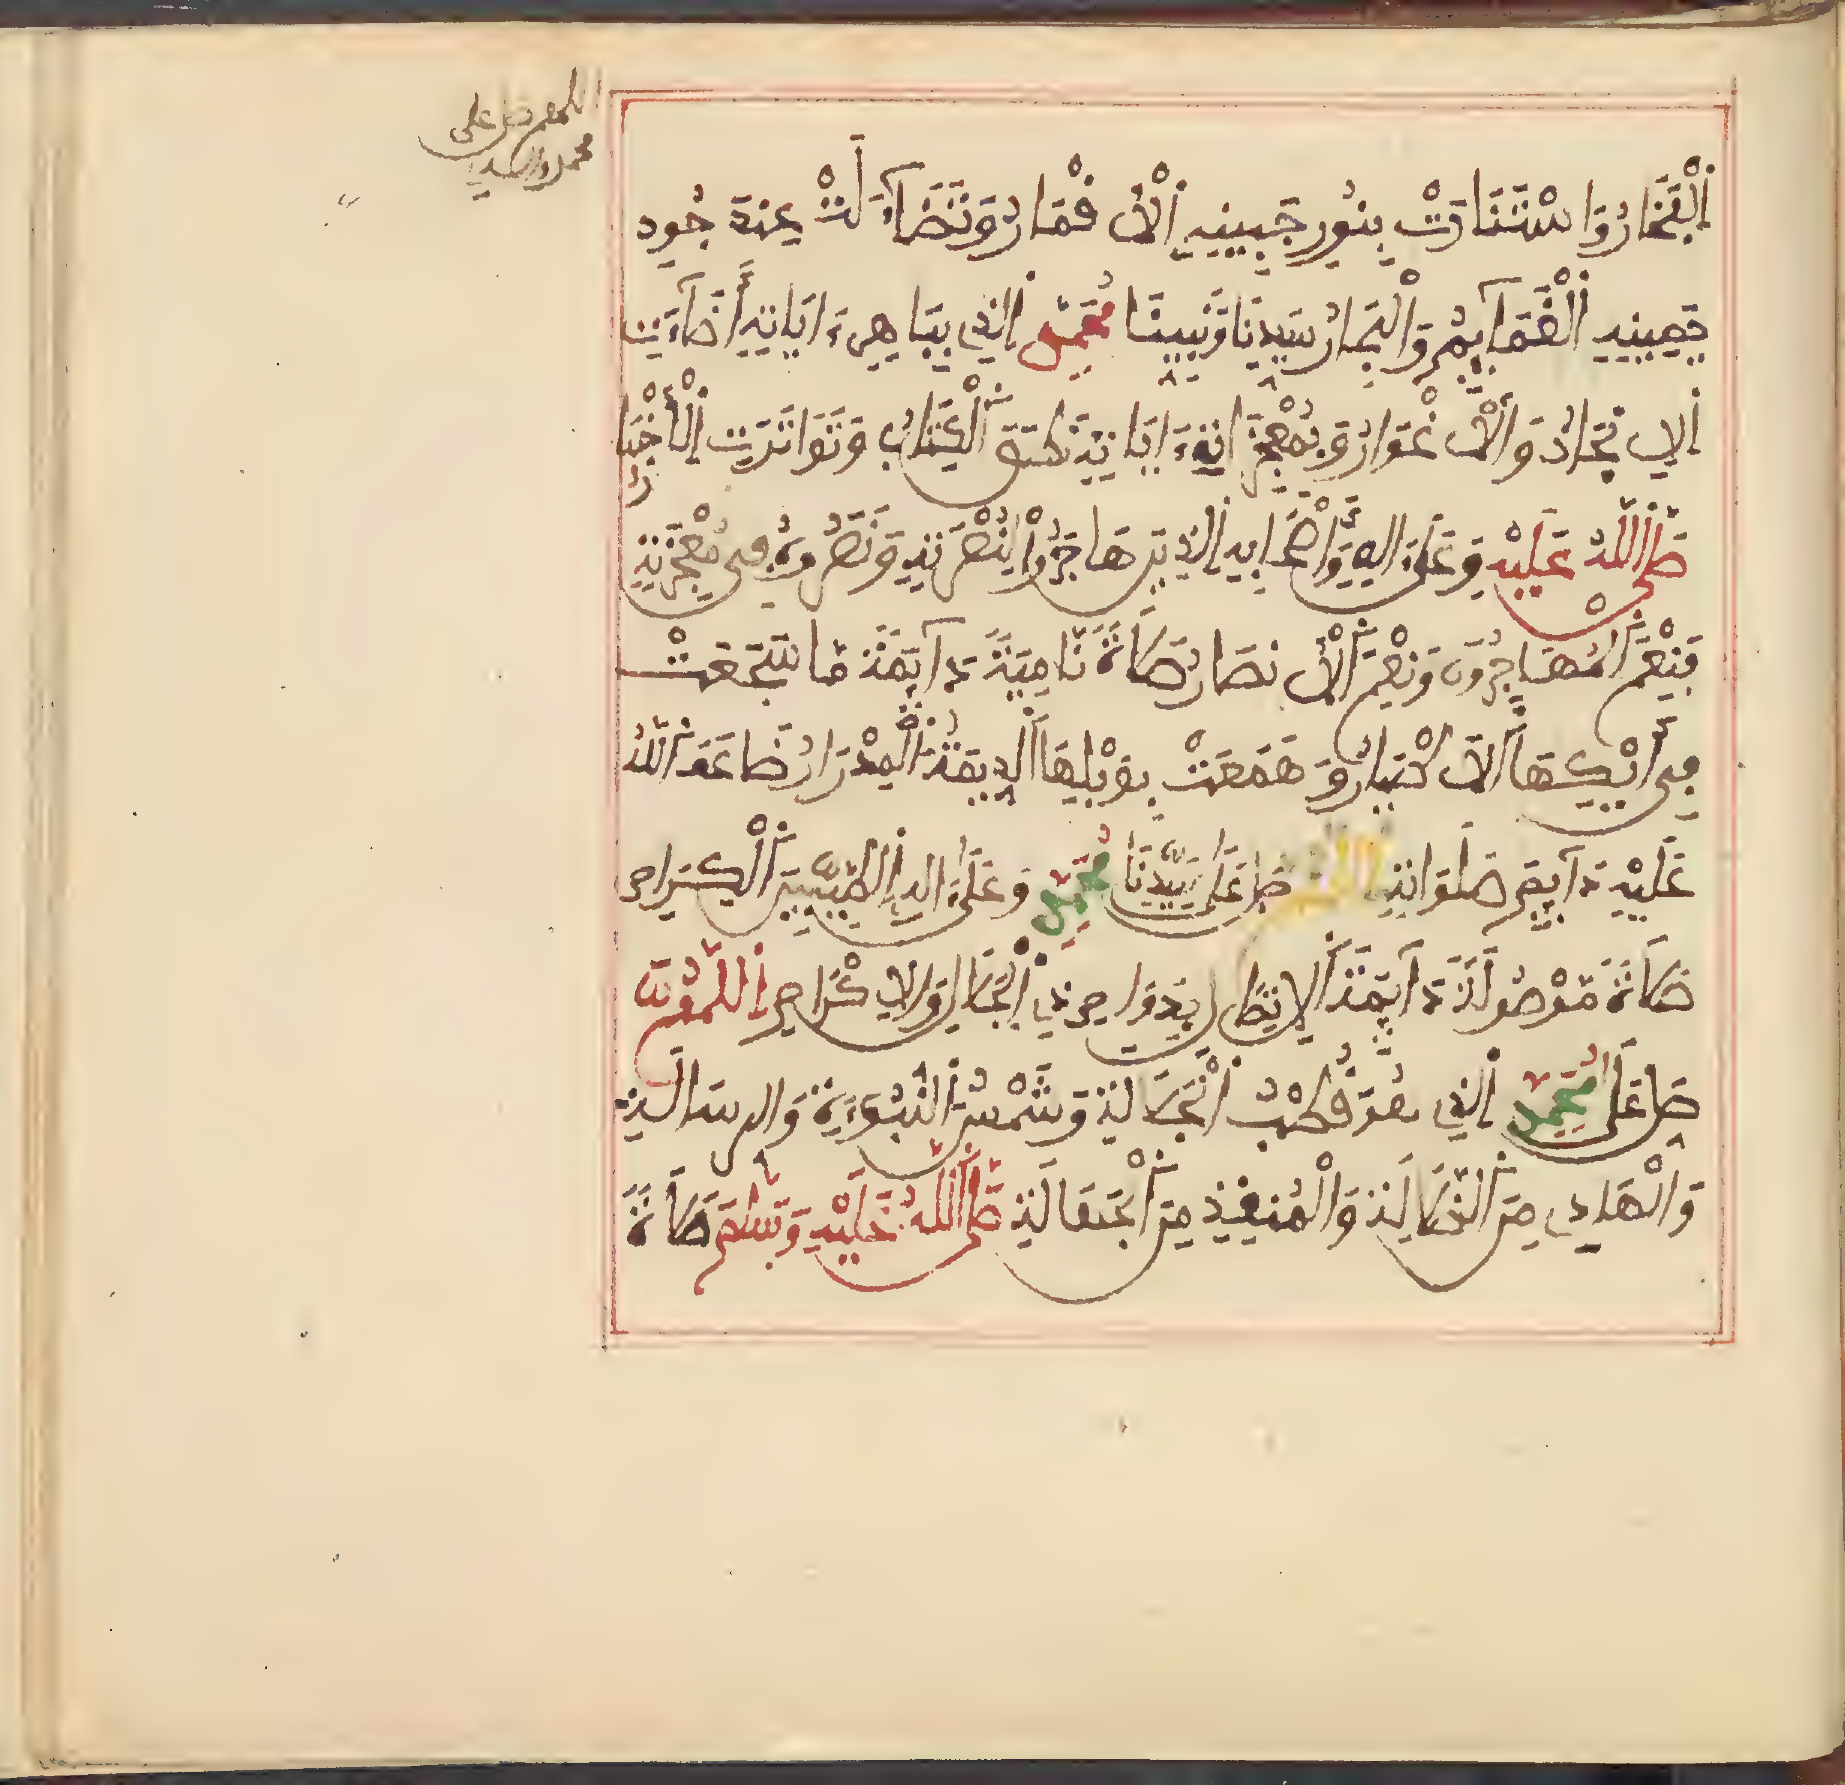 اَلْفَخَارُ وَاسْتَنَارَتْ بِنُورِ جَبِينِهِ اِلْأَقْمَارُ وَتَضَآءَلَتْ عِنْدَ جُودِ
يَمِينِهِ اَلْغَمَآئِمُ وَالْبِحَارُ سَيِّدِنَا وَنَبِيِّنَا مُحَمَّدٍ اِلَّذِي بِبَاهِرِ ءَايَاتِهِ أَضَآءَتِ
اِلَانْجَادُ وَالَاغْوَارُ وَبِمُعْجِزَاتِ ءَايَاتِهِ نَطَقَ اَلْكِتَابُ وَتَوَاتَرَتِ اِلْأَخْبَارُ
صَلَّى اَللَّهُ عَلَيْهِ وَعَلَى ءَالِهِ وَأَصْحَابِهِ اِلَّذِينَ هَاجَرُوا لِنُصْرَتِهِ وَنَصَرُوهُ فِي هِجْرَتِهِ
فَنِعْمَ اَلْمُهَاجِرُونَ وَنِعْمَ اَلْأَنْصَارُ صَلَاةً نَامِيَةً دَآئِمَةً مَا سَجَعَتْ
فِي أَيْكِهَا اَلْاَطْيَارُ وَهَمَعَتْ بِوَبْلِهَا اَلدِّيمَةُ اَلْمِدْرَارُ ضَاعَفَ اَللَّهُ
عَلَيْهِ دَآئِمَ صَلَوَاتِهِ اَللَّهُمَّ صَلِّ عَلَى سَيِّدِنَا مُحَمَّدٍ وَعَلَى ءَالِهِ اِلطَّيِّبِينَ اَلْكِرَامِ
صَلَاةً مَوْصُولَةً دَآئِمَةَ اَلِاتِّصَالِ بِدَوَامِ ذِي اِلْجَلَالِ وَالِاكْرَامِ اِللَّهُمَّ
صَلِّ عَلَى مُحَمَّدٍ اِلَّذِي هُوَ قُطْبُ اَلْجَلَالَةِ وَشَمْسُ اَلنُّبُوءَةِ وَالرِّسَالَةِ
وَالْهَادِي مِنَ اَلضَّلَالَةِ وَالْمُنْقِذِ مِنَ اَلْجَهَالَةِ صَلَّى اَللَّهُ عَلَيْهِ وَسَلَّمَ صَلَاةً
اللهم صل على
محمد واله